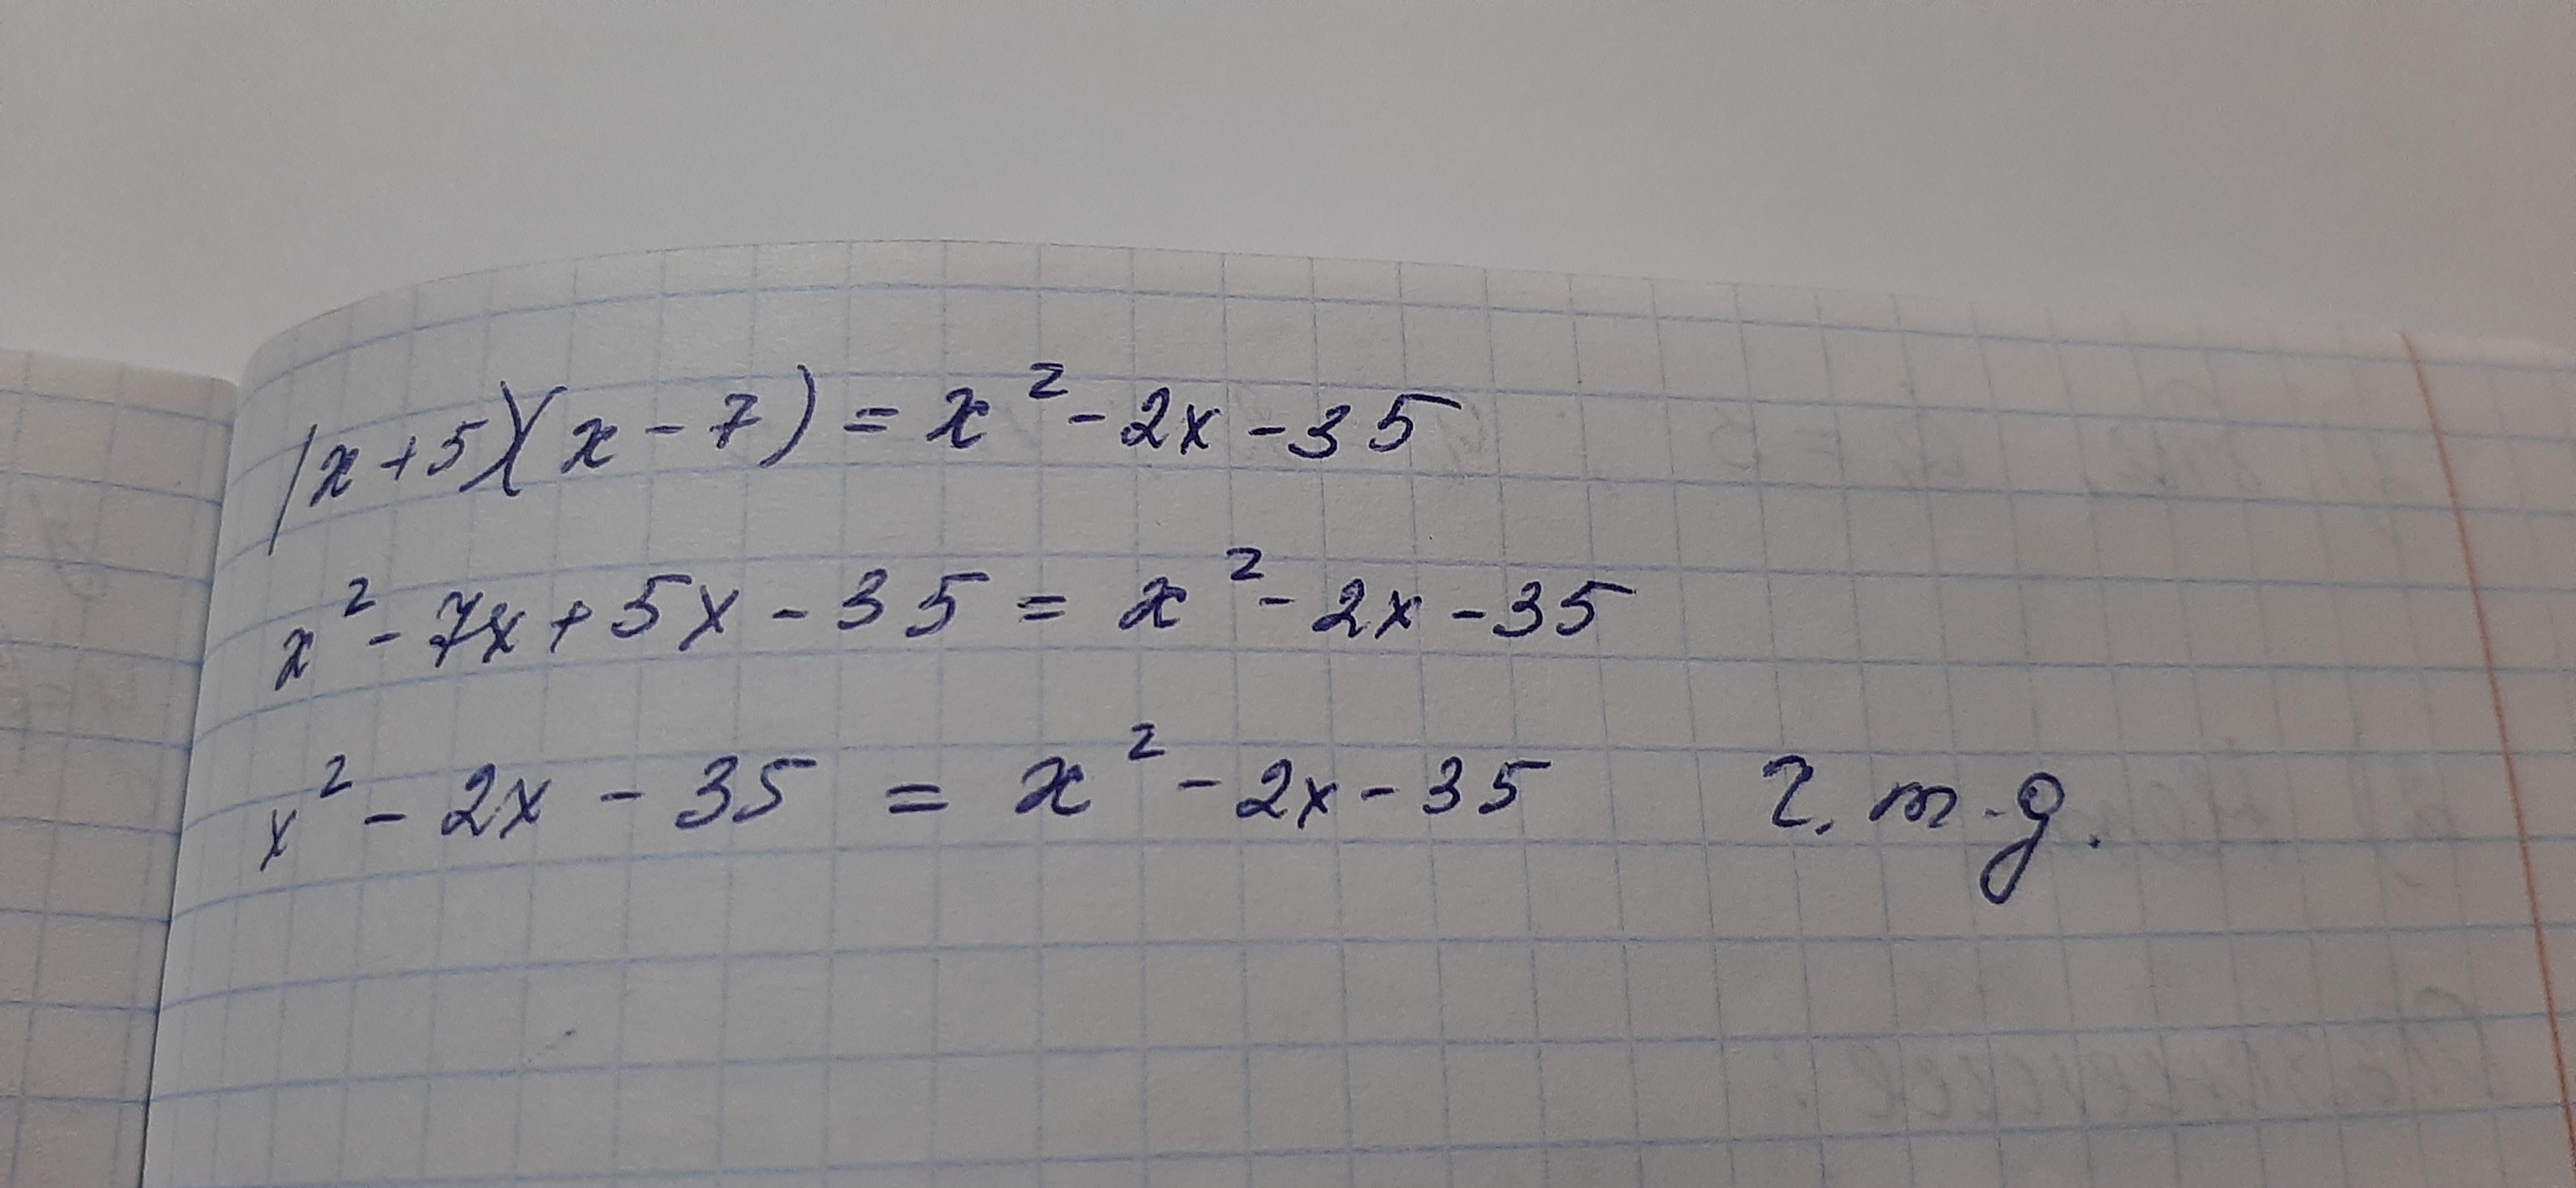 (x+5)(x-7) = x² - 2x - 35
x² - 7x + 5x - 35 = x² - 2x - 35
x² - 2x - 35 = x² - 2x - 35 ч. т. д.